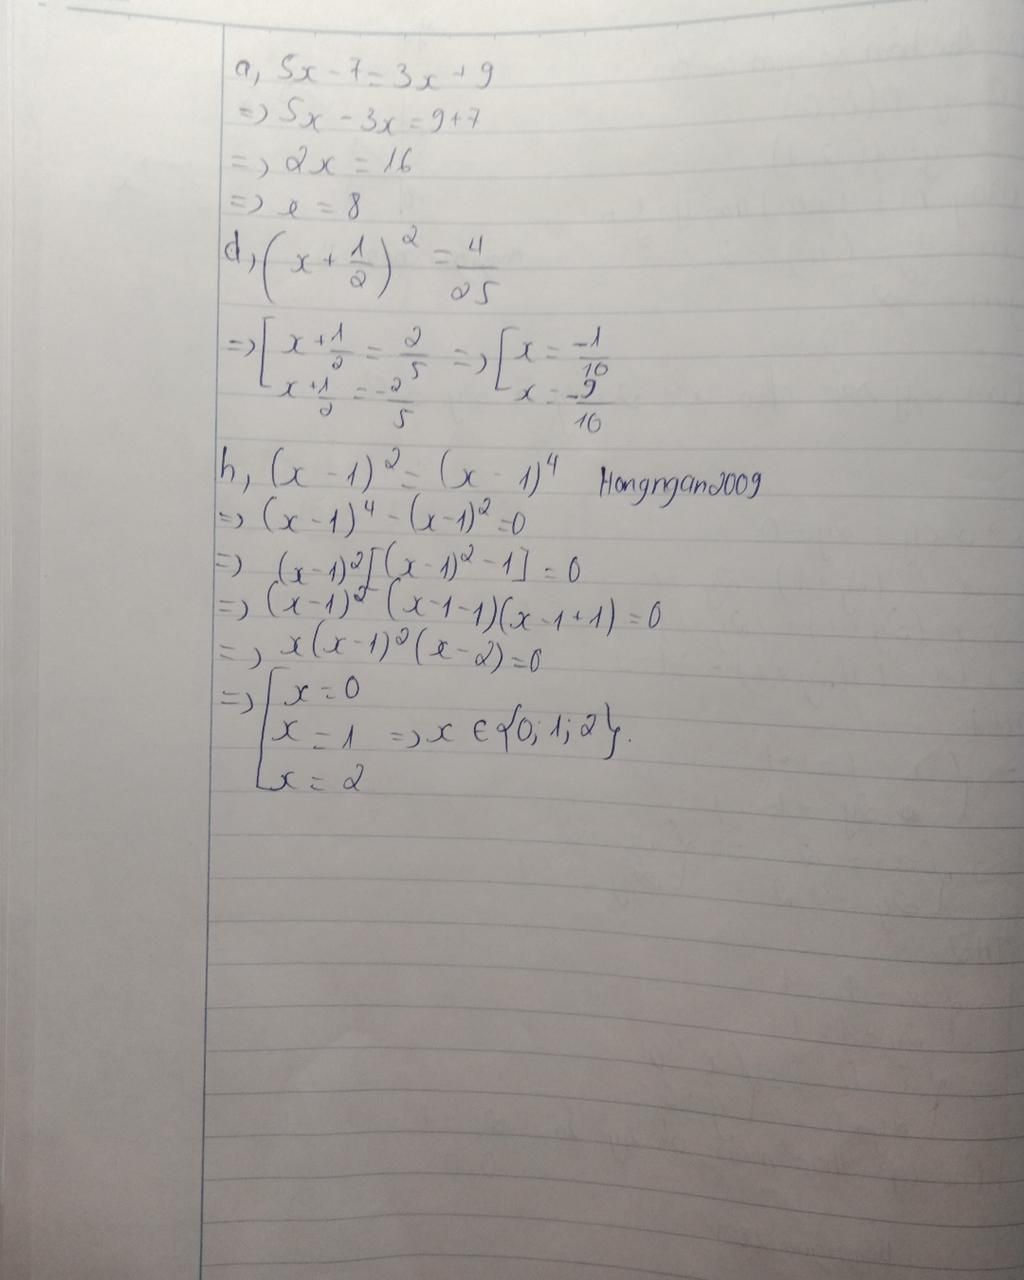 a, 5x - 7 = 3x + 9
=> 5x - 3x = 9+7
=> 2x = 16
=> x = 8
d, (x + 1/2)^2 = 4/25
=> [ x + 1/2 = 2/5 => [ x = -1/10
x + 1/2 = -2/5 x = -9/10
h, (x - 1)^2 = (x - 1)^4 Hongngan2009
=> (x - 1)^4 - (x-1)^2 = 0
=> (x-1)^2 [(x-1)^2 - 1] = 0
=> (x-1)^2 (x-1-1)(x-1+1) = 0
=> x(x-1)^2(x-2)=0
=> [ x = 0
x = 1 => x ∈ {0; 1; 2}.
x = 2